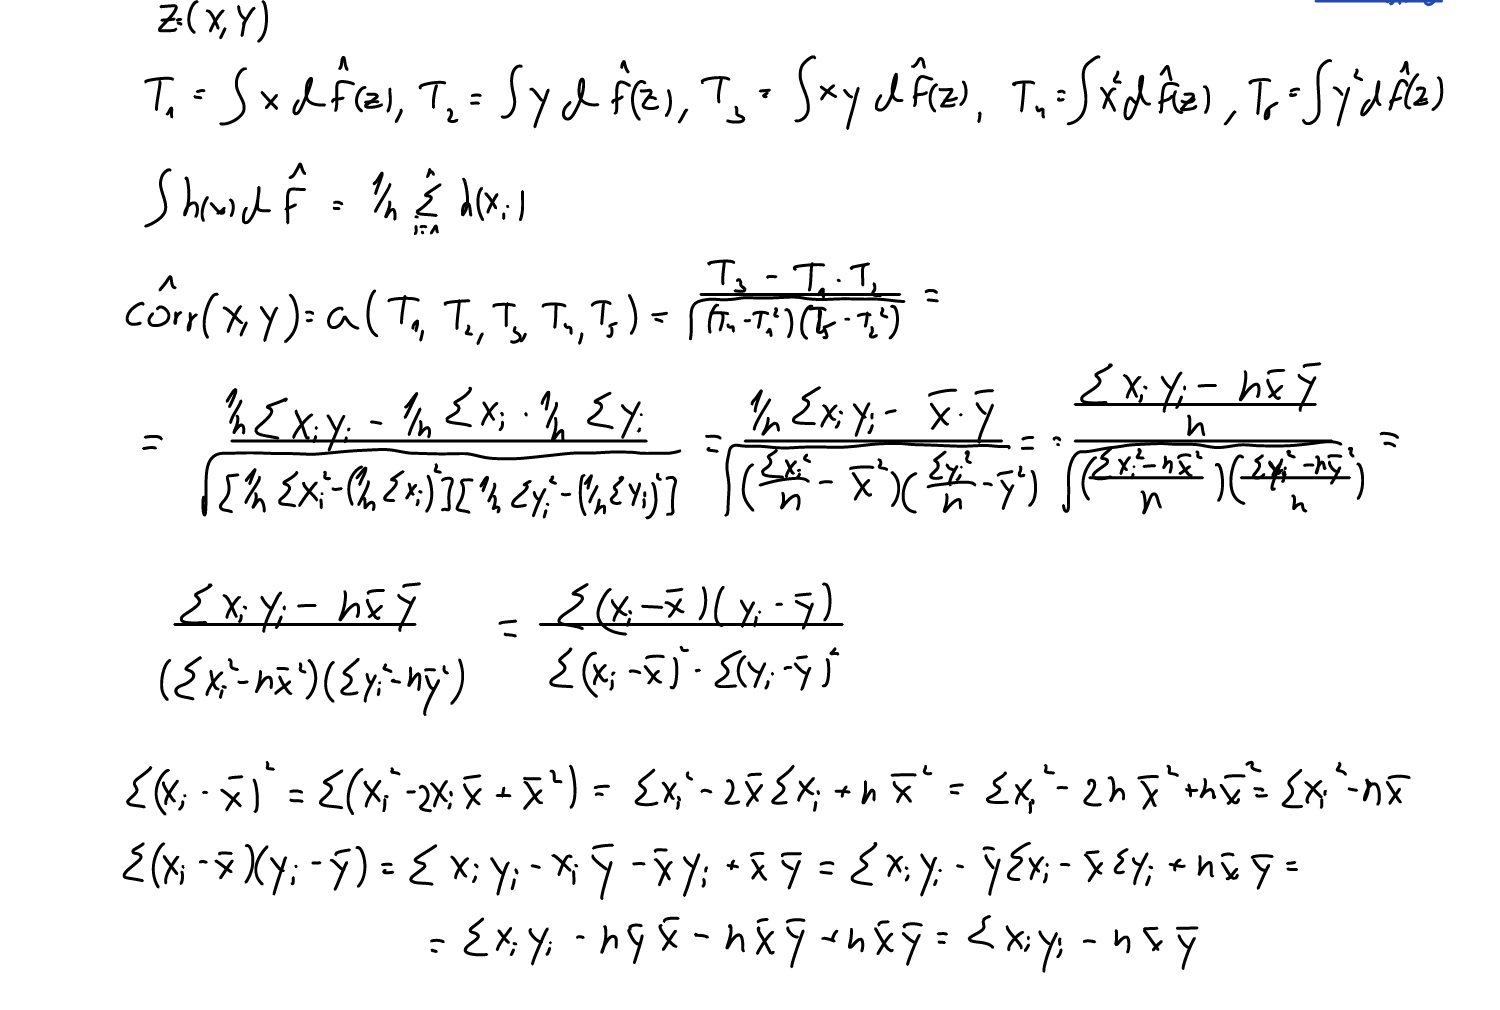 Z=(X,Y)
T₁ = ∫ x d F̂(z), T₂ = ∫ y d F̂(z), T₃ = ∫ xy d F̂(z), T₄ = ∫ x² d F̂(z), T₅ = ∫ y² d F̂(z)
∫ h(x) d F̂ = 1/n Σ_{i=1}^{n} h(xᵢ)
côrr(X,Y) = a(T₁, T₂, T₃, T₄, T₅) = (T₃ - T₁·T₂) / √((T₄ - T₁²)(T₅ - T₂²)) =
= (1/n Σ xᵢyᵢ - 1/n Σxᵢ · 1/n Σyᵢ) / √([1/n Σxᵢ² - (1/n Σxᵢ)²][1/n Σyᵢ² - (1/n Σyᵢ)²]) = (1/n Σxᵢyᵢ - x̄·ȳ) / √((Σxᵢ²/n - x̄²)(Σyᵢ²/n - ȳ²)) = ((Σxᵢyᵢ - nx̄ȳ)/n) / √(((Σxᵢ² - nx̄²)/n)((Σyᵢ² - nȳ²)/n)) =
(Σxᵢyᵢ - nx̄ȳ) / ((Σxᵢ² - nx̄²)(Σyᵢ² - nȳ²)) = Σ(xᵢ - x̄)(yᵢ - ȳ) / (Σ(xᵢ - x̄)² · Σ(yᵢ - ȳ)²)
Σ(xᵢ - x̄)² = Σ(xᵢ² - 2xᵢx̄ + x̄²) = Σxᵢ² - 2x̄Σxᵢ + nx̄² = Σxᵢ² - 2nx̄² + nx̄² = Σxᵢ² - nx̄
Σ(xᵢ - x̄)(yᵢ - ȳ) = Σ xᵢyᵢ - xᵢȳ - x̄yᵢ + x̄ȳ = Σxᵢyᵢ - ȳΣxᵢ - x̄Σyᵢ + nx̄ȳ =
= Σxᵢyᵢ - nȳx̄ - nx̄ȳ + nx̄ȳ = Σxᵢyᵢ - nx̄ȳ